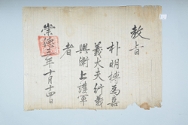 教旨
朴明榑爲嘉
義大夫行龍
驤衛上護軍
者
崇德三年十月十四日